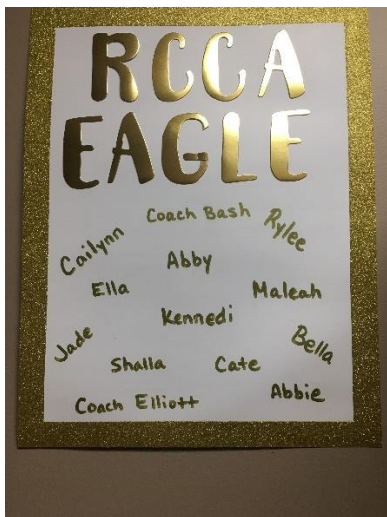 RCCA
EAGLE
Coach Bash
Rylee
Cailynn
Abby
Ella
Maleah
Kennedi
Jade
Bella
Shalla
Cate
Abbie
Coach Elliott